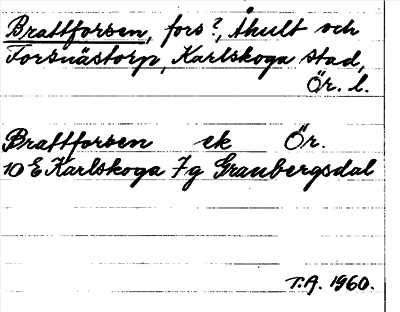 Brattforsen, fors?, Åhult och
Torsnästorp, Karlskoga stad,
Ör. l.
Brattforsen ek Ör.
10 E Karlskoga 7g Granbergsdal
T.A. 1960.